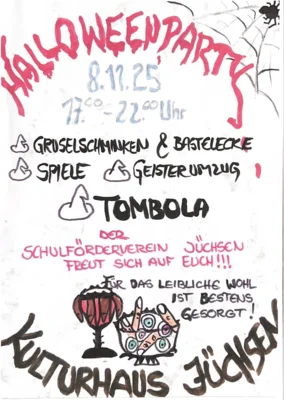 HALLOWEENPARTY
8.11.25
17.00-22.00 Uhr
GRUSELSCHMINKEN & BASTELECKE
SPIELE GEISTERUMZUG
TOMBOLA
DER
SCHULFÖRDERVEREIN JÜCHSEN
FREUT SICH AUF EUCH!!!
FÜR DAS LEIBLICHE WOHL
IST BESTENS
GESORGT!
KULTURHAUS JÜCHSEN